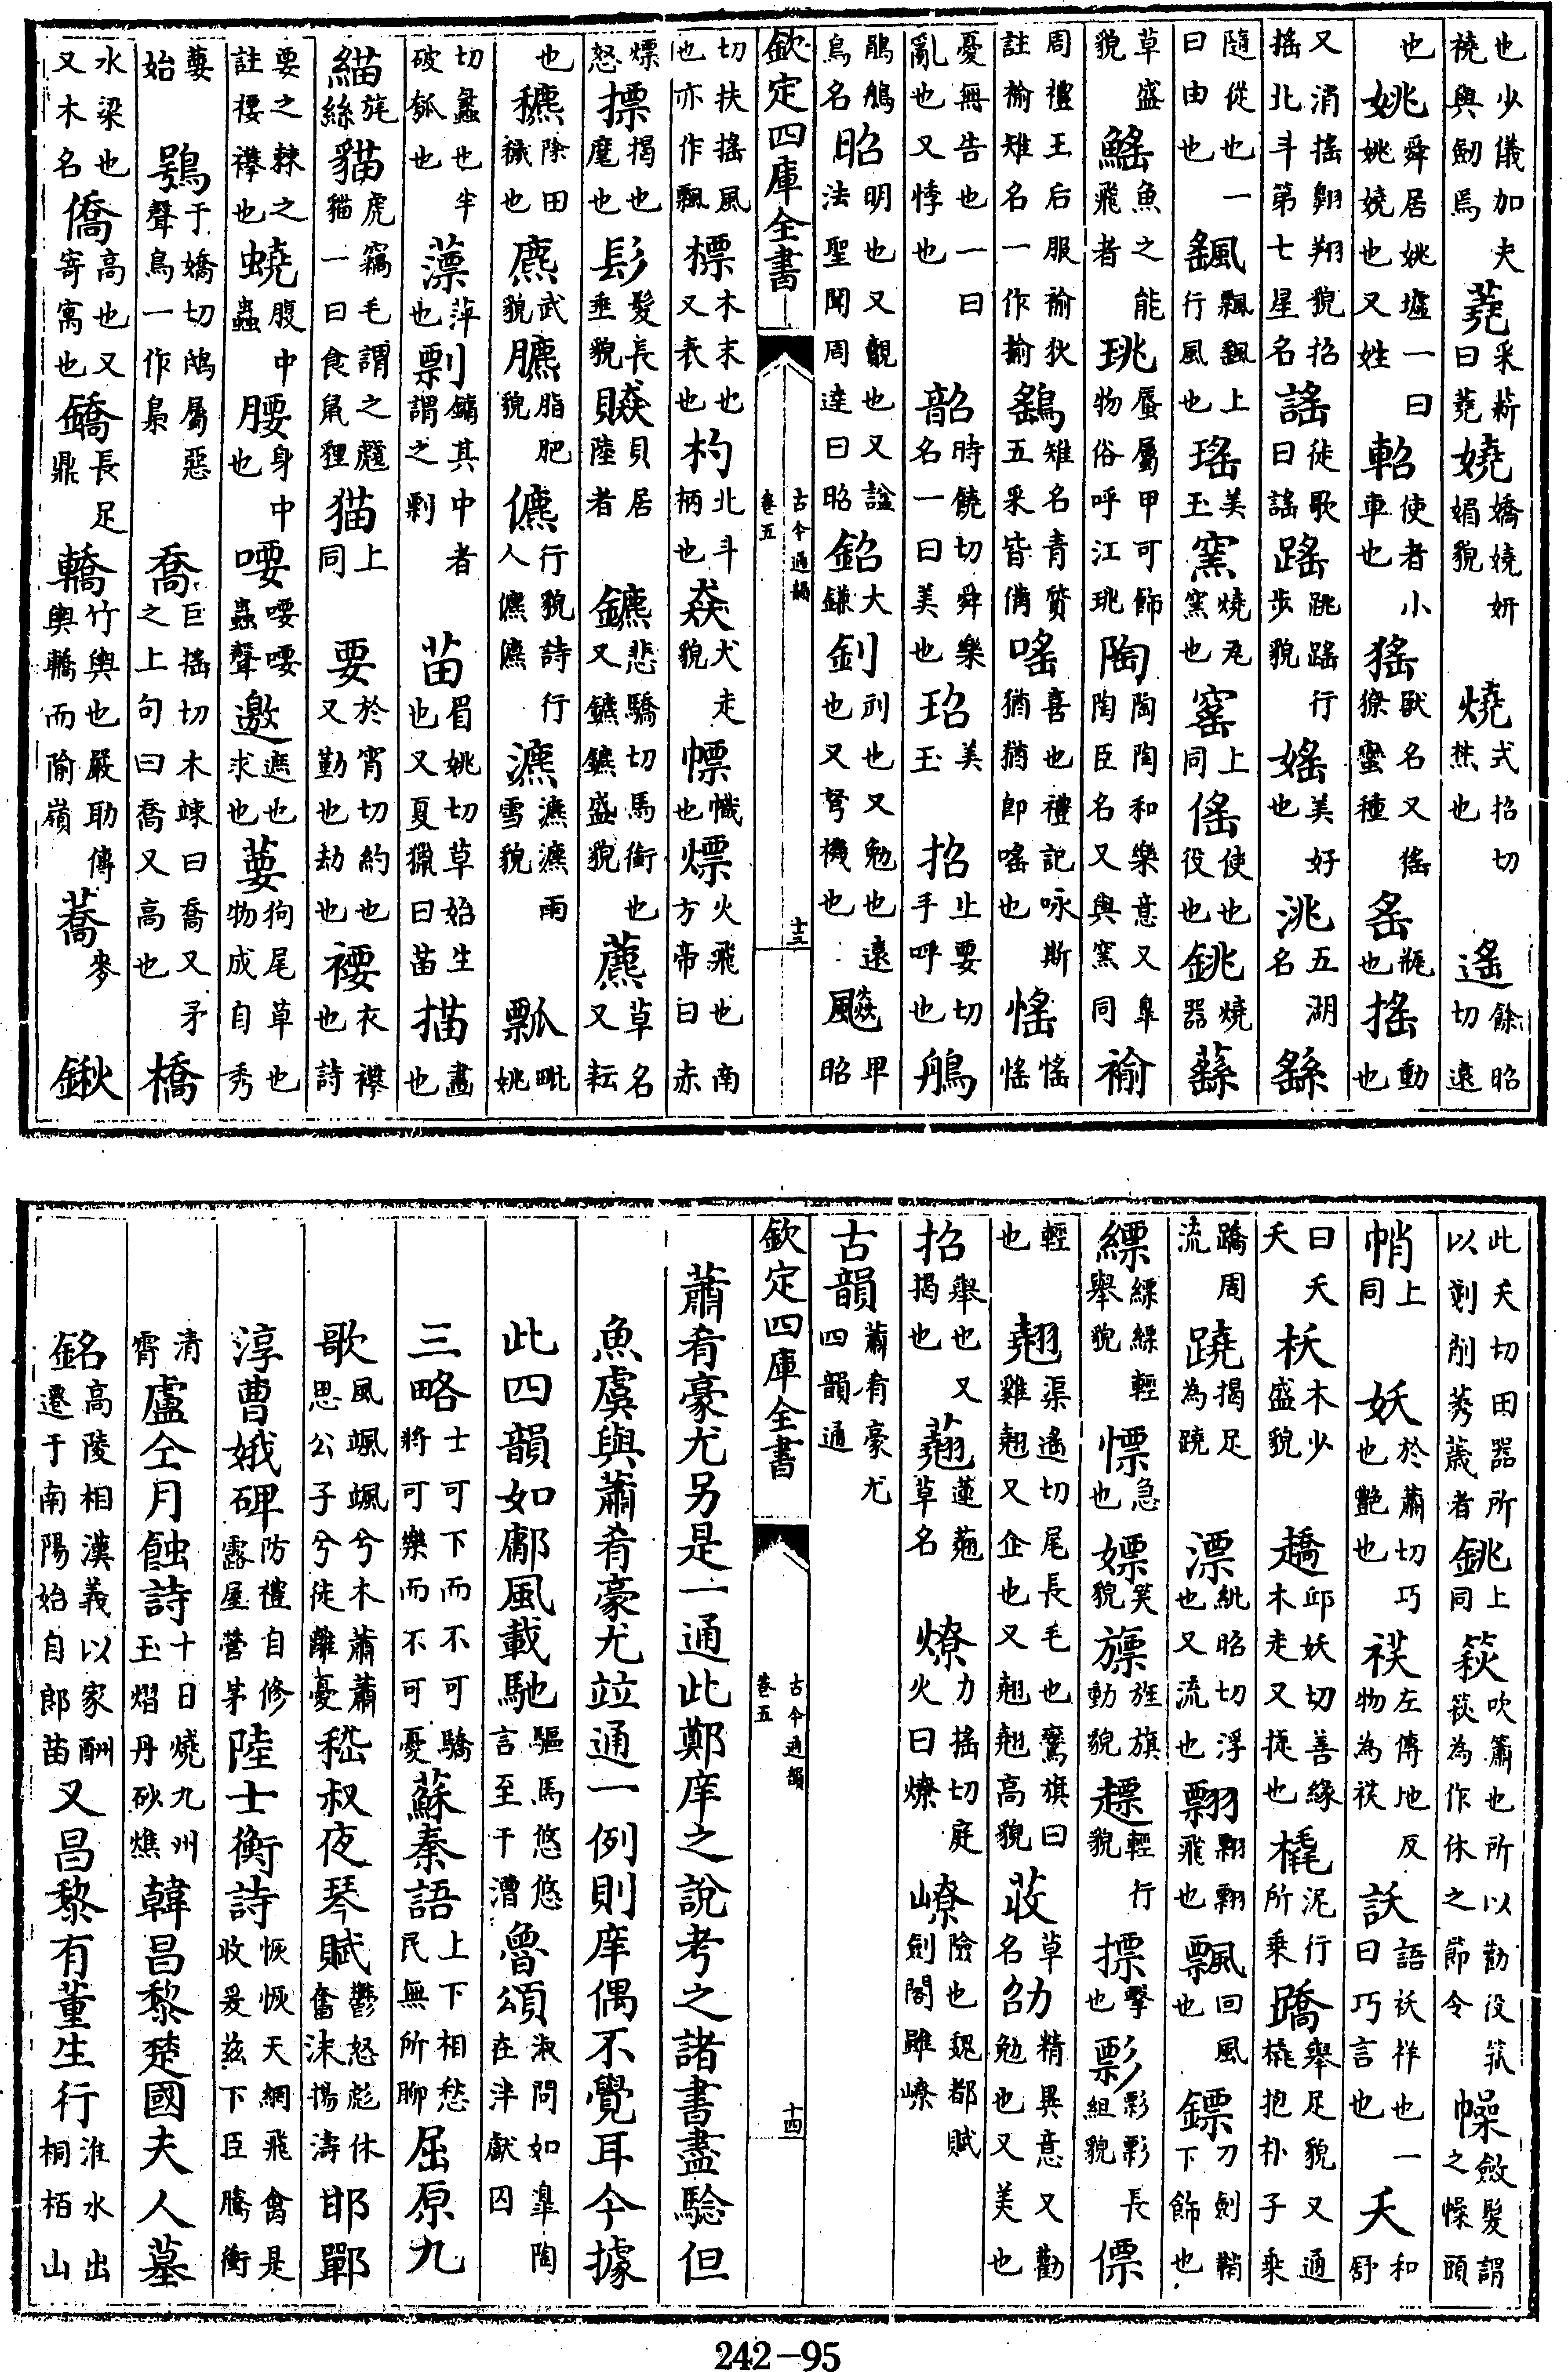 也少儀加夫襓與劒焉蕘采薪曰蕘嬈嬌嬈妍媚貌燒式招切爇也遙餘昭切遠
也姚舜居姚墟一曰姚嬈也又姓軺使者小車也猺獸名又猺獠蠻種䍃瓶也搖動也
又消搖翱翔貌招搖北斗第七星名謠徒歌曰謠䠛跳䠛行步貌媱美好也洮五湖名繇
隨從也一曰由也颻飄颻上行風也瑤美玉窯燒瓦窯也窰上同傜使也役也銚燒器蘨
草盛貌鰩魚之能飛者珧蜃屬甲可飾物俗呼江珧陶陶陶和樂意又臯陶臣名又與窯同褕
周禮王后服褕狄註褕雉名一作揄鷂雉名青質五采皆備嗂喜也禮記咏斯猶猶即嗂也愮愮愮
憂無告也一曰亂也又悖也韶時饒切舜樂名一曰美也玿美玉招止要切手呼也鵃
鶻鵃鳥名昭明也又覿也又諡法聖聞周達曰昭鉊大鎌釗刓也又勉也遠也又弩機也飇甲昭
欽定四庫全書 古今通韻 卷五 十三
切扶搖風也亦作飄標木末也又表也杓北斗柄也猋犬走貌幖幟也熛火飛也南方帝曰赤
熛怒摽揭也麾也髟髮長垂貌贆貝居陸者鑣悲驕切馬銜也又鑣鑣盛貌藨草名又耘
也穮除田穢也麃武貌臕脂肥貌儦行貌詩行人儦儦瀌瀌瀌雨雪貌瓢毗姚
切蠡也半破瓠也薸萍也剽鏞其中者謂之剽苗眉姚切草始生也又夏獵曰苗描畫也
緢旄絲貓虎竊毛謂之虦貓一曰食鼠狸猫上同要於宵切約也又勤也劫也䙅衣襻也詩
要之棘之註褸襻也蟯腹中蟲腰身中也喓喓喓蟲聲邀遮也求也葽狗尾草也物成自秀
葽始鴞于嬌切鴟屬惡聲鳥一作梟喬巨搖切木竦曰喬又矛之上句曰喬又高也橋
水梁也又木名僑高也又寄寓也鐈長足鼎轎竹輿也嚴助傳輿轎而隃嶺蕎麥鍬
此夭切田器所以剗削莠薉者銚上同篍吹簫也所以勸役筑篍為作休之節令幧斂髮謂之幧頭
帩上同妖於蕭切巧也艷也祅左傳地反物為祅訞語祅祥也一曰巧言也夭和舒
曰夭夭枖木少盛貌趫邱妖切善緣木走又捷也橇泥行所乘蹻舉足貌又通橇抱朴子乘
蹻周流蹺揭足為蹺漂紕昭切浮也又流也翲翲翲飛也飄回風也鏢刀劍鞘下飾也
縹縹縹輕舉貌慓急也嫖笑貌旚旌旗動貌䠞輕行貌摽擊也彯彯彯長組貌僄
輕也翹渠遙切尾長毛也鸞旗曰雞翹又企也又翹翹高貌荍草名劭精異意又勸勉也又美也
招舉也又揭也蘶蓮蘶草名燎力搖切庭火曰燎嶚險也魏都賦劍閣雖嶚
古韻蕭肴豪尤四韻通
欽定四庫全書 古今通韻 卷五 十四
蕭肴豪尤另是一通此鄭庠之說考之諸書盡騐但
魚虞與蕭肴豪尤竝通一例則庠偶不覺耳今據
此四韻如鄘風載馳驅馬悠悠言至于漕魯頌淑問如臯陶在泮獻囚
三略士可下而不可驕將可樂而不可憂蘇秦語上下相愁民無所聊屈原九
歌風颯颯兮木蕭蕭思公子兮徒離憂嵇叔夜琴賦鬱怒彪休奮沫揚濤邯鄲
淳曹娥碑防禮自修露屋營茅陸士衡詩恢恢天網飛禽是收爰茲下臣騰衡
清霄盧仝月蝕詩十日燒九州玉熠丹砂燋韓昌黎楚國夫人墓
銘高陵相漢義以家酬遷于南陽始自郎苗又昌黎有董生行淮水出桐栢山
242-95